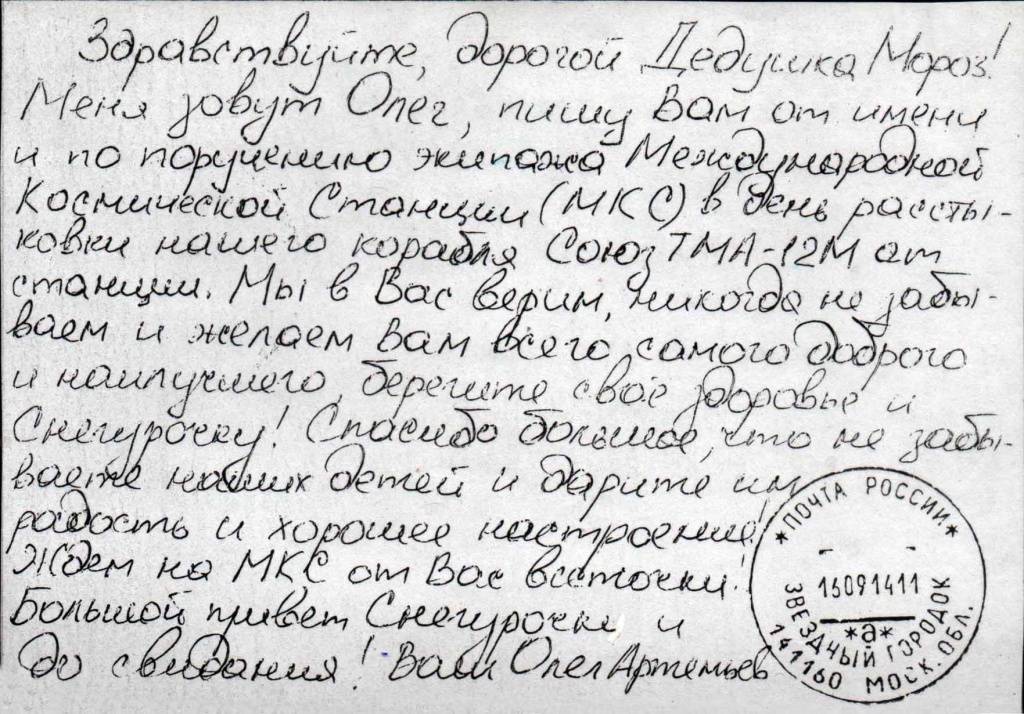 Здравствуйте, дорогой Дедушка Мороз!
Меня зовут Олег, пишу Вам от имени
и по поручению экипажа Международной
Космической Станции (МКС) в день рассты-
ковки нашего корабля Союз ТМА-12М от
станции. Мы в Вас верим, никогда не забы-
ваем и желаем Вам всего самого доброго
и наилучшего, берегите своё здоровье и
Снегурочку! Спасибо большое, что не забы-
ваете наших детей и дарите им
радость и хорошее настроение!
Ждём на МКС от Вас весточки!
Большой привет Снегурочке и
до свидания! Ваш Олег Артемьев
*ПОЧТА РОССИИ*
15091411
*д*
ЗВЕЗДНЫЙ ГОРОДОК
141160 МОСК. ОБЛ.